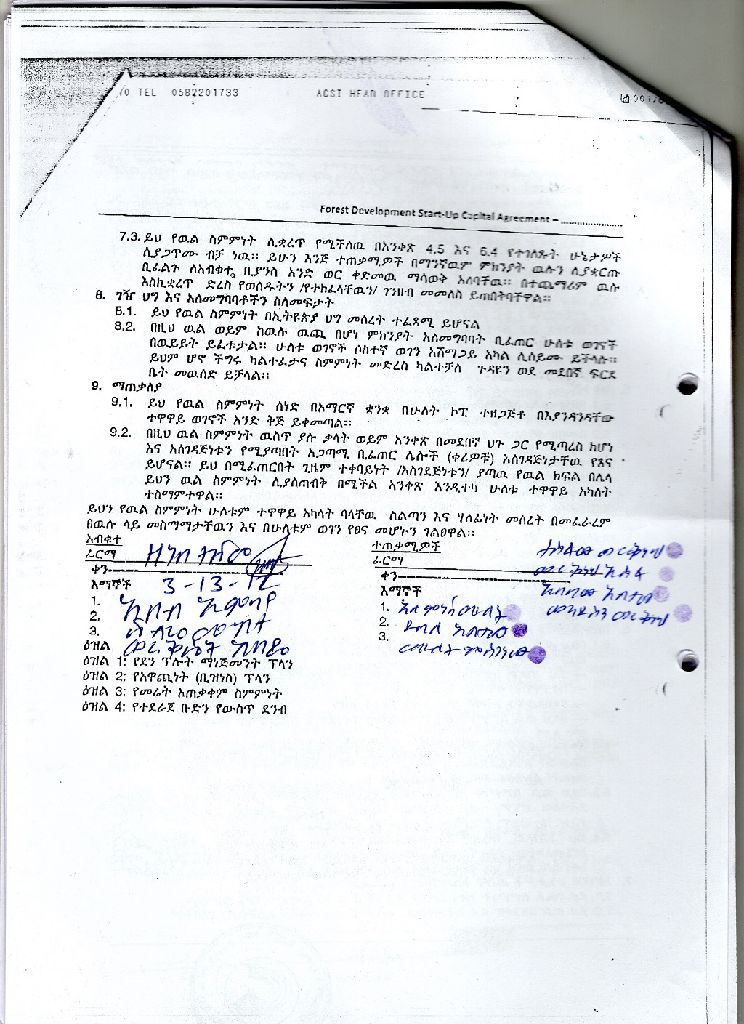 TEL 0582201733 ACSI HEAD OFFICE
Forest Development Start-Up Capital Agreement –
7.3. ይህ የዉል ስምምነት ሊቋረጥ የሚችለዉ በአንቀጽ 4.5 እና 6.4 የተገለጹት ሁኔታዎች
ሲያጋጥሙ ብቻ ነዉ። ይሁን እንጅ ተጠቃሚዎች በማንኛዉም ምክንያት ዉሉን ሲያቋርጡ
ቢፈልጉ ለአብቁተ ቢያንስ አንድ ወር ቀድመዉ ማሳወቅ አለባቸዉ። በተጨማሪም ዉሉ
እስኪቋረጥ ድረስ የወሰዱትን/የተከፈላቸዉን/ ገንዘብ መመለስ ይጠበቅባቸዋል።
8. ገዥ ህግ እና አለመግባባቶችን ስለመፍታት
8.1. ይህ የዉል ስምምነት በኢትዮጵያ ህግ መሰረት ተፈጻሚ ይሆናል
8.2. በዚህ ዉል ወይም ከዉሉ ዉጪ በሆነ ምክንያት አለመግባባት ቢፈጠር ሁለቱ ወገኖች
በዉይይት ይፈቱታል። ሁለቱ ወገኖች ሶስተኛ ወገን አሸማጋይ አካል ሊሰይሙ ይችላሉ።
ይህም ሆኖ ችግሩ ካልተፈታና ስምምነት መድረስ ካልተቻለ ጉዳዩን ወደ መደበኛ ፍርድ
ቤት መዉሰድ ይቻላል።
9. ማጠቃለያ
9.1. ይህ የዉል ስምምነት ሰነድ በአማርኛ ቋንቋ በሁለት ኮፒ ተዘጋጅቶ በእያንዳንዳቸው
ተዋዋይ ወገኖች አንድ ቅጅ ይቀመጣል።
9.2. በዚህ ዉል ስምምነት ዉስጥ ያሉ ቃላት ወይም አንቀጽ በመደበኛ ህጉ ጋር የሚጣረስ ከሆነ
እና አስገዳጅነቱን የሚያጣበት አጋጣሚ ቢፈጠር ሌሎች (ቀሪዎቹ) አስገዳጅነታቸዉ የጸና
ይሆናል። ይህ በሚፈጠርበት ጊዜም ተቀባይነት /አስገደጅነቱን/ ያጣዉ የዉል ክፍል በሌላ
ይህን ዉል ስምምነት ሊያስጠብቅ በሚችል አንቀጽ እንዲተካ ሁለቱ ተዋዋይ አካለት
ተስማምተዋል።
ይህን የዉል ስምምነት ሁለቱም ተዋዋይ አካላት ባላቸዉ ስልጣን እና ሃላፊነት መሰረት በመፈራረም
በዉሉ ላይ መስማማታቸዉን እና በሁለቱም ወገን የፀና መሆኑን ገልፀዋል።
አብቁተ
ፊርማ
ቀን
3-13-12
እማኞች
1.
2.
3.
ዕዝል
ዕዝል 1: የደን ፕሎት ማኔጅመንት ፕላን
ዕዝል 2: የአዋጪነት (ቢዝነስ) ፕላን
ዕዝል 3: የመሬት አጠቃቀም ስምምነት
ዕዝል 4: የተደራጀ ቡድን የውስጥ ደንብ
ተጠቃሚዎች
ፊርማ
ቀን
እማኞች
1.
2.
3.